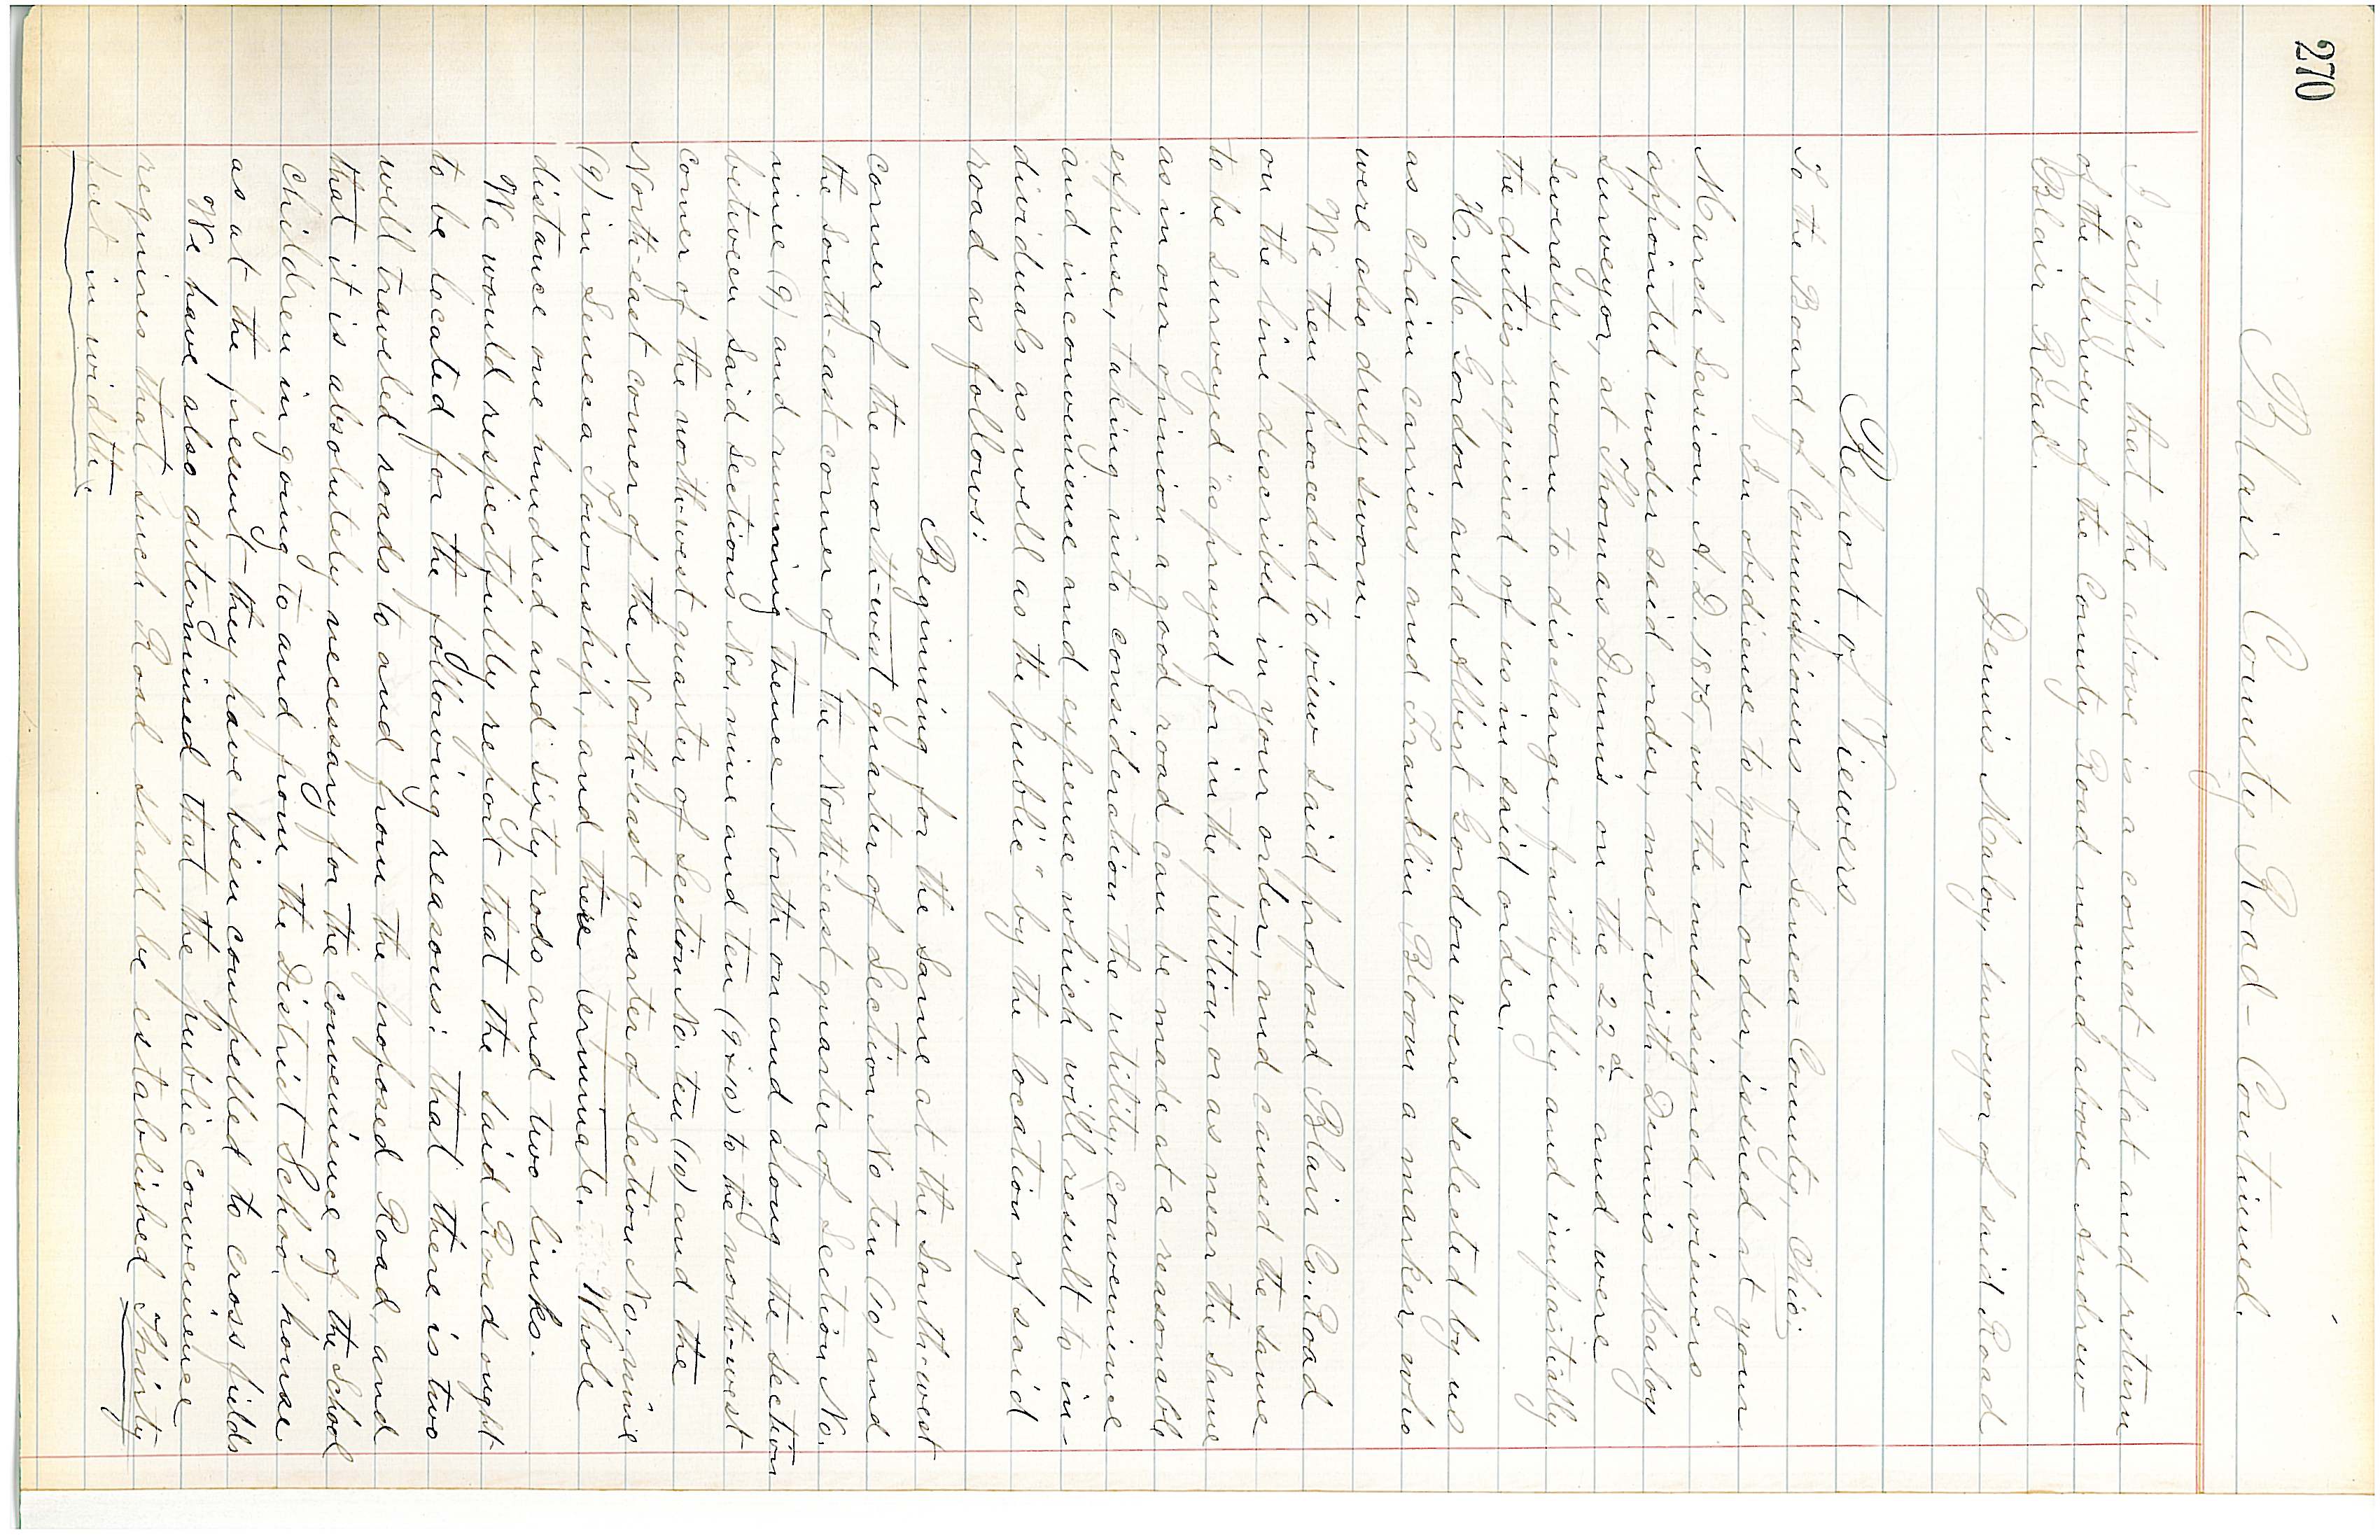 270
Blair County Road - Continued.
I certify that the above is a correct plat and return
of the survey of the County Road named above Andrew
Blair Road.
Dennis Maloy, Surveyor of said Road
Report of Viewers
To the Board of Commissioners of Seneca County, Ohio:
In obedience to your order, issued at your
March Session, A.D. 1875, we, the undersigned, viewers
appointed under said order, met with Dennis Maloy
surveyor, at Thomas Dennis on the 22d. and were
severally sworn to discharge, faithfully and impartially
the duties required of us in said order.
H. M. Gordon and Albert Gordon were selected by us
as chain carriers and Franklin Bloom a marker, who
were also duly sworn.
We then proceeded to view said proposed Blair Co. Road
on the line described in your order, and caused the same
to be surveyed "as prayed for in the petition, or as near the same
as in our opinion a good road can be made at a reasonable
expense, taking into consideration the utility, convenience
and inconvenience and expense which will result to in-
dividuals as well as the public" by the location of said
road as follows:
Beginning for the same at the South-west
corner of the north-west quarter of Section No ten (10) and
the South-east corner of the North-east quarter of Section No.
nine (9) and running thence North on and along the section
between said Sections Nos. nine and ten (9 & 10) to the north-west
corner of the north-west quarter of Section No. ten (10) and the
North-east corner of the North-east quarter of Section No. nine
(9) in Seneca Township, and there terminate. Whole
distance one hundred and sixty rods and two links.
We would respectfully report that the said Road ought
to be located for the following reasons: that there is two
well traveled roads to and from the proposed Road, and
that it is absolutely necessary for the convenience of the School
Children in going to and from the District School house
as at the present they have been compelled to cross fields
We have also determined that the public convenience
requires that such Road shall be established Thirty
feet in width.